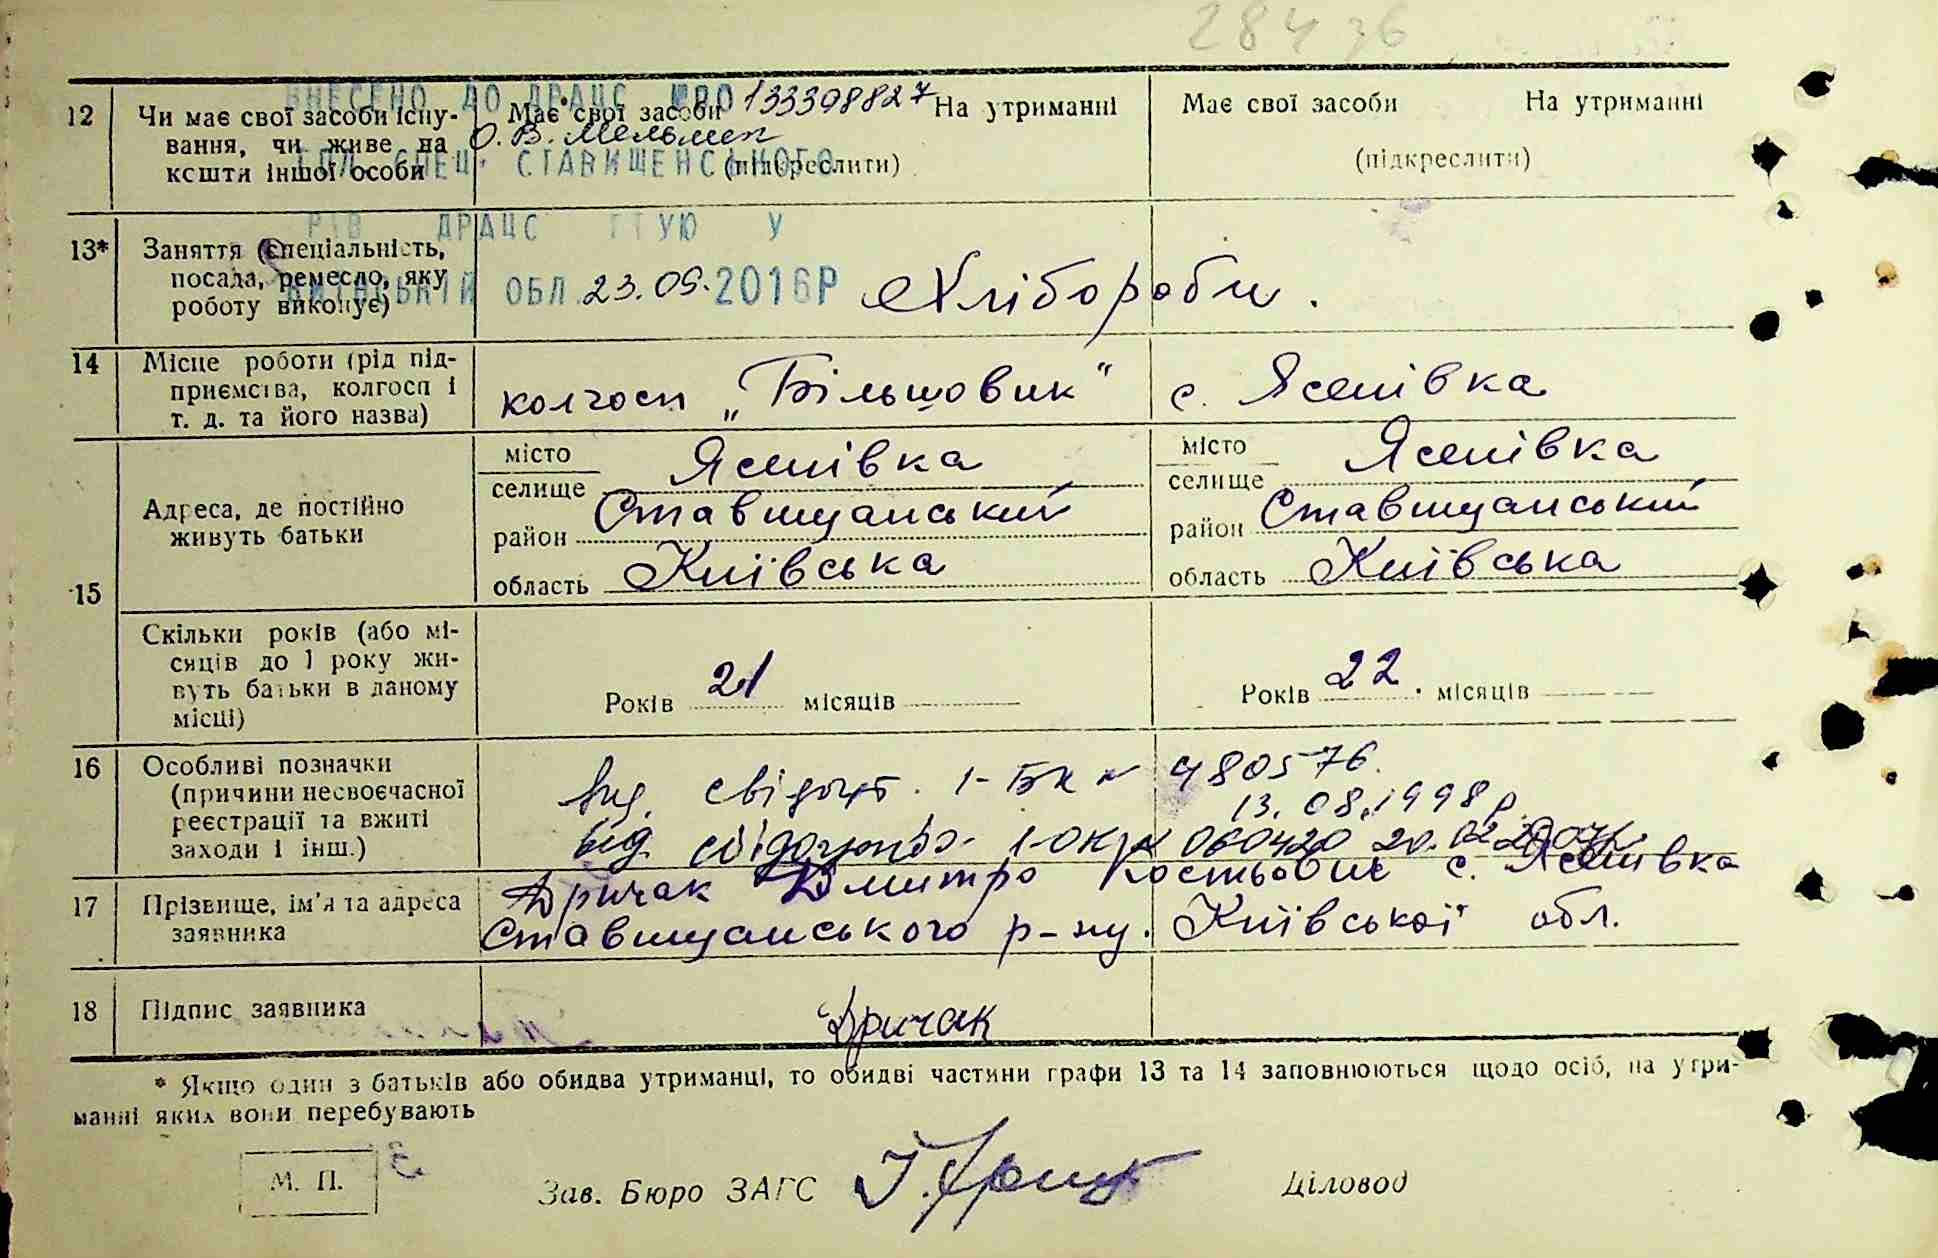 284 зб
ВНЕСЕНО ДО ДРАЦС №РО 133398827
О. В. Мельник
ГОЛ. СПЕЦ. СТАВИЩЕНСЬКОГО
РІВ ДРАЦС ГТУЮ У
КИЇВСЬКІЙ ОБЛ. 23.09.2016Р
12 Чи має свої засоби існу- Має свої засоби На утриманні Має свої засоби На утриманні
вання, чи живе на (підкреслити) (підкреслити)
кошти іншої особи
13* Заняття (спеціальність,
посада, ремесло, яку Хлібороби.
роботу виконує)
14 Місце роботи (рід під-
приємства, колгосп і колгосп „Більшовик" с. Ясенівка
т. д. та його назва)
15 Адреса, де постійно
живуть батьки
місто Ясенівка місто Ясенівка
селище селище
район Ставищанський район Ставищанський
область Київська область Київська
Скільки років (або мі-
сяців до 1 року жи-
вуть батьки в даному
місці)
Років 21 місяців Років 22 місяців
16 Особливі позначки
(причини несвоєчасної
реєстрації та вжиті
заходи і інш.)
Вид. свідоцт. 1-БК № 480576
13.08.1998 р.
1-ОК № 060420 20.02
17 Прізвище, ім'я та адреса
заявника
Дричак Дмитро Костьович с. Ясенівка
Ставищанського р-ну. Київської обл.
18 Підпис заявника Дричак
* Якщо один з батьків або обидва утриманці, то обидві частини графи 13 та 14 заповнюються щодо осіб, на утри-
манні яких вони перебувають
М. П.
Зав. Бюро ЗАГС Діловод